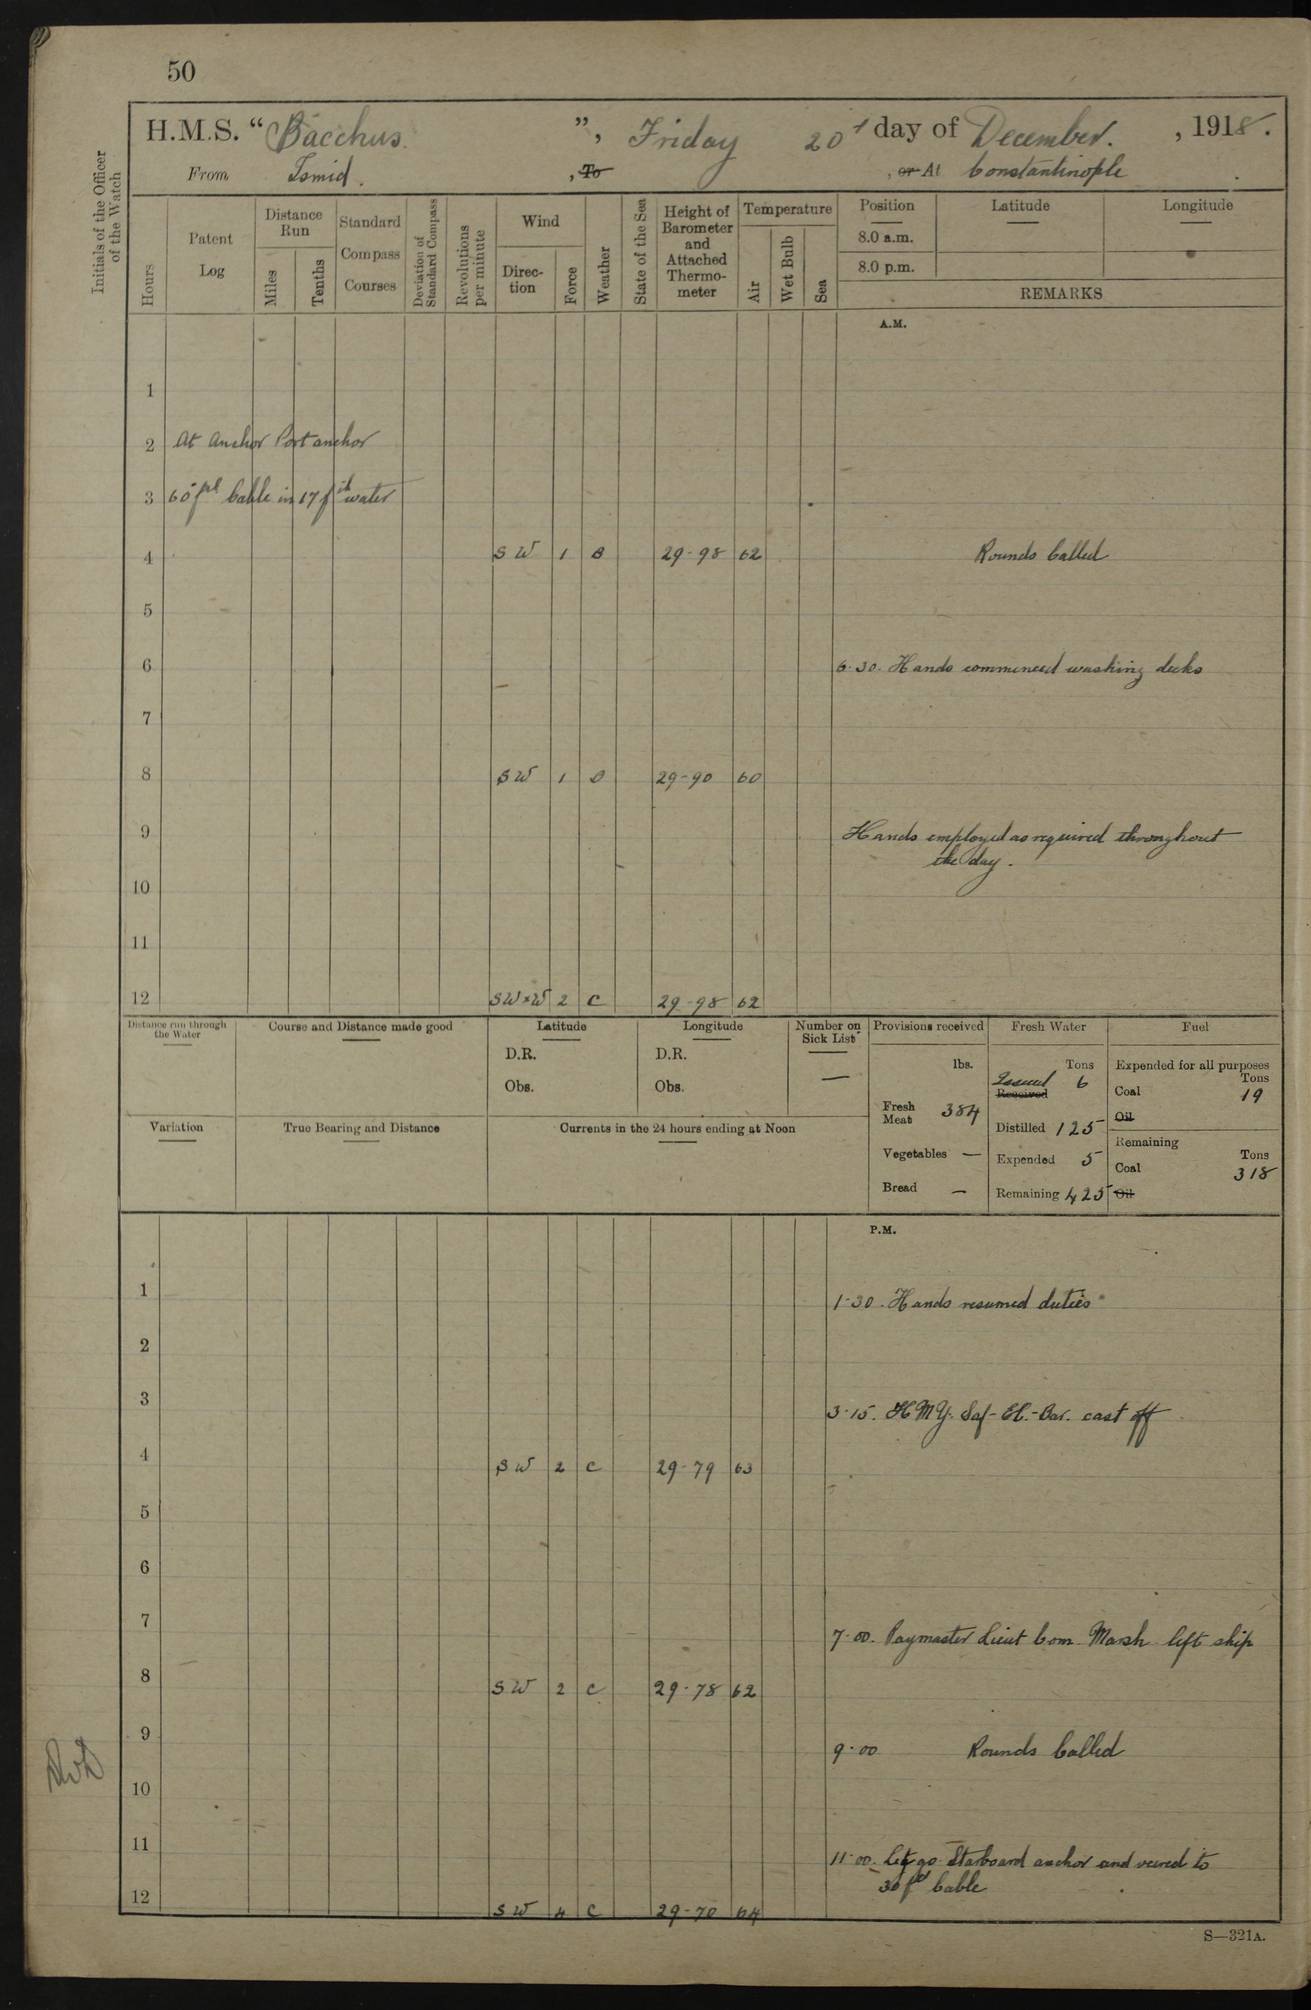 50
H.M.S. “Bacchus”, Friday 20 day of December, 1918.
From Ismid, To, or At Constantinople
Initials of the Officer of the Watch
Hours
Patent Log
Distance Run
Miles
Tenths
Standard Compass Courses
Deviation of Standard Compass
Revolutions per minute
Wind
Direc-tion
Force
Weather
State of the Sea
Height of Barometer and Attached Thermo-meter
Temperature
Air
Wet Bulb
Sea
Position
Latitude
Longitude
8.0 a.m.
8.0 p.m.
REMARKS
A.M.
1
2 At Anchor Port anchor
3 60 Cable in 17 water
4 SW 1 B 29-98 62 Rounds Called
5
6 6-30. Hands commenced washing decks
7
8 SW 1 29-90 60
9 Hands employed as required throughout
the day.
10
11
12 SW×W 2 C 29-98 62
Distance run through the Water
Course and Distance made good
Latitude
D.R.
Obs.
Longitude
D.R.
Obs.
Number on Sick List
—
Provisions received
lbs.
Fresh Meat 384
Vegetables —
Bread —
Fresh Water
Tons
Issued 6
Received
Distilled 125
Expended 5
Remaining 425
Fuel
Expended for all purposes
Tons
Coal 19
Oil
Remaining
Tons
Coal 318
Oil
Variation
True Bearing and Distance
Currents in the 24 hours ending at Noon
P.M.
1 1-30. Hands resumed duties
2
3 3-15. HMY. Saf-El-Bar. cast off
4 SW 2 C 29-79 63
5
6
7 7-00. Paymaster Lieut Com Marsh left ship
8 SW 2 C 29-78 62
9 9-00 Rounds Called
10
11 11-00. Let go Starboard anchor and veered to
30 Cable
12 SW 4 C 29-70 64
S—321A.